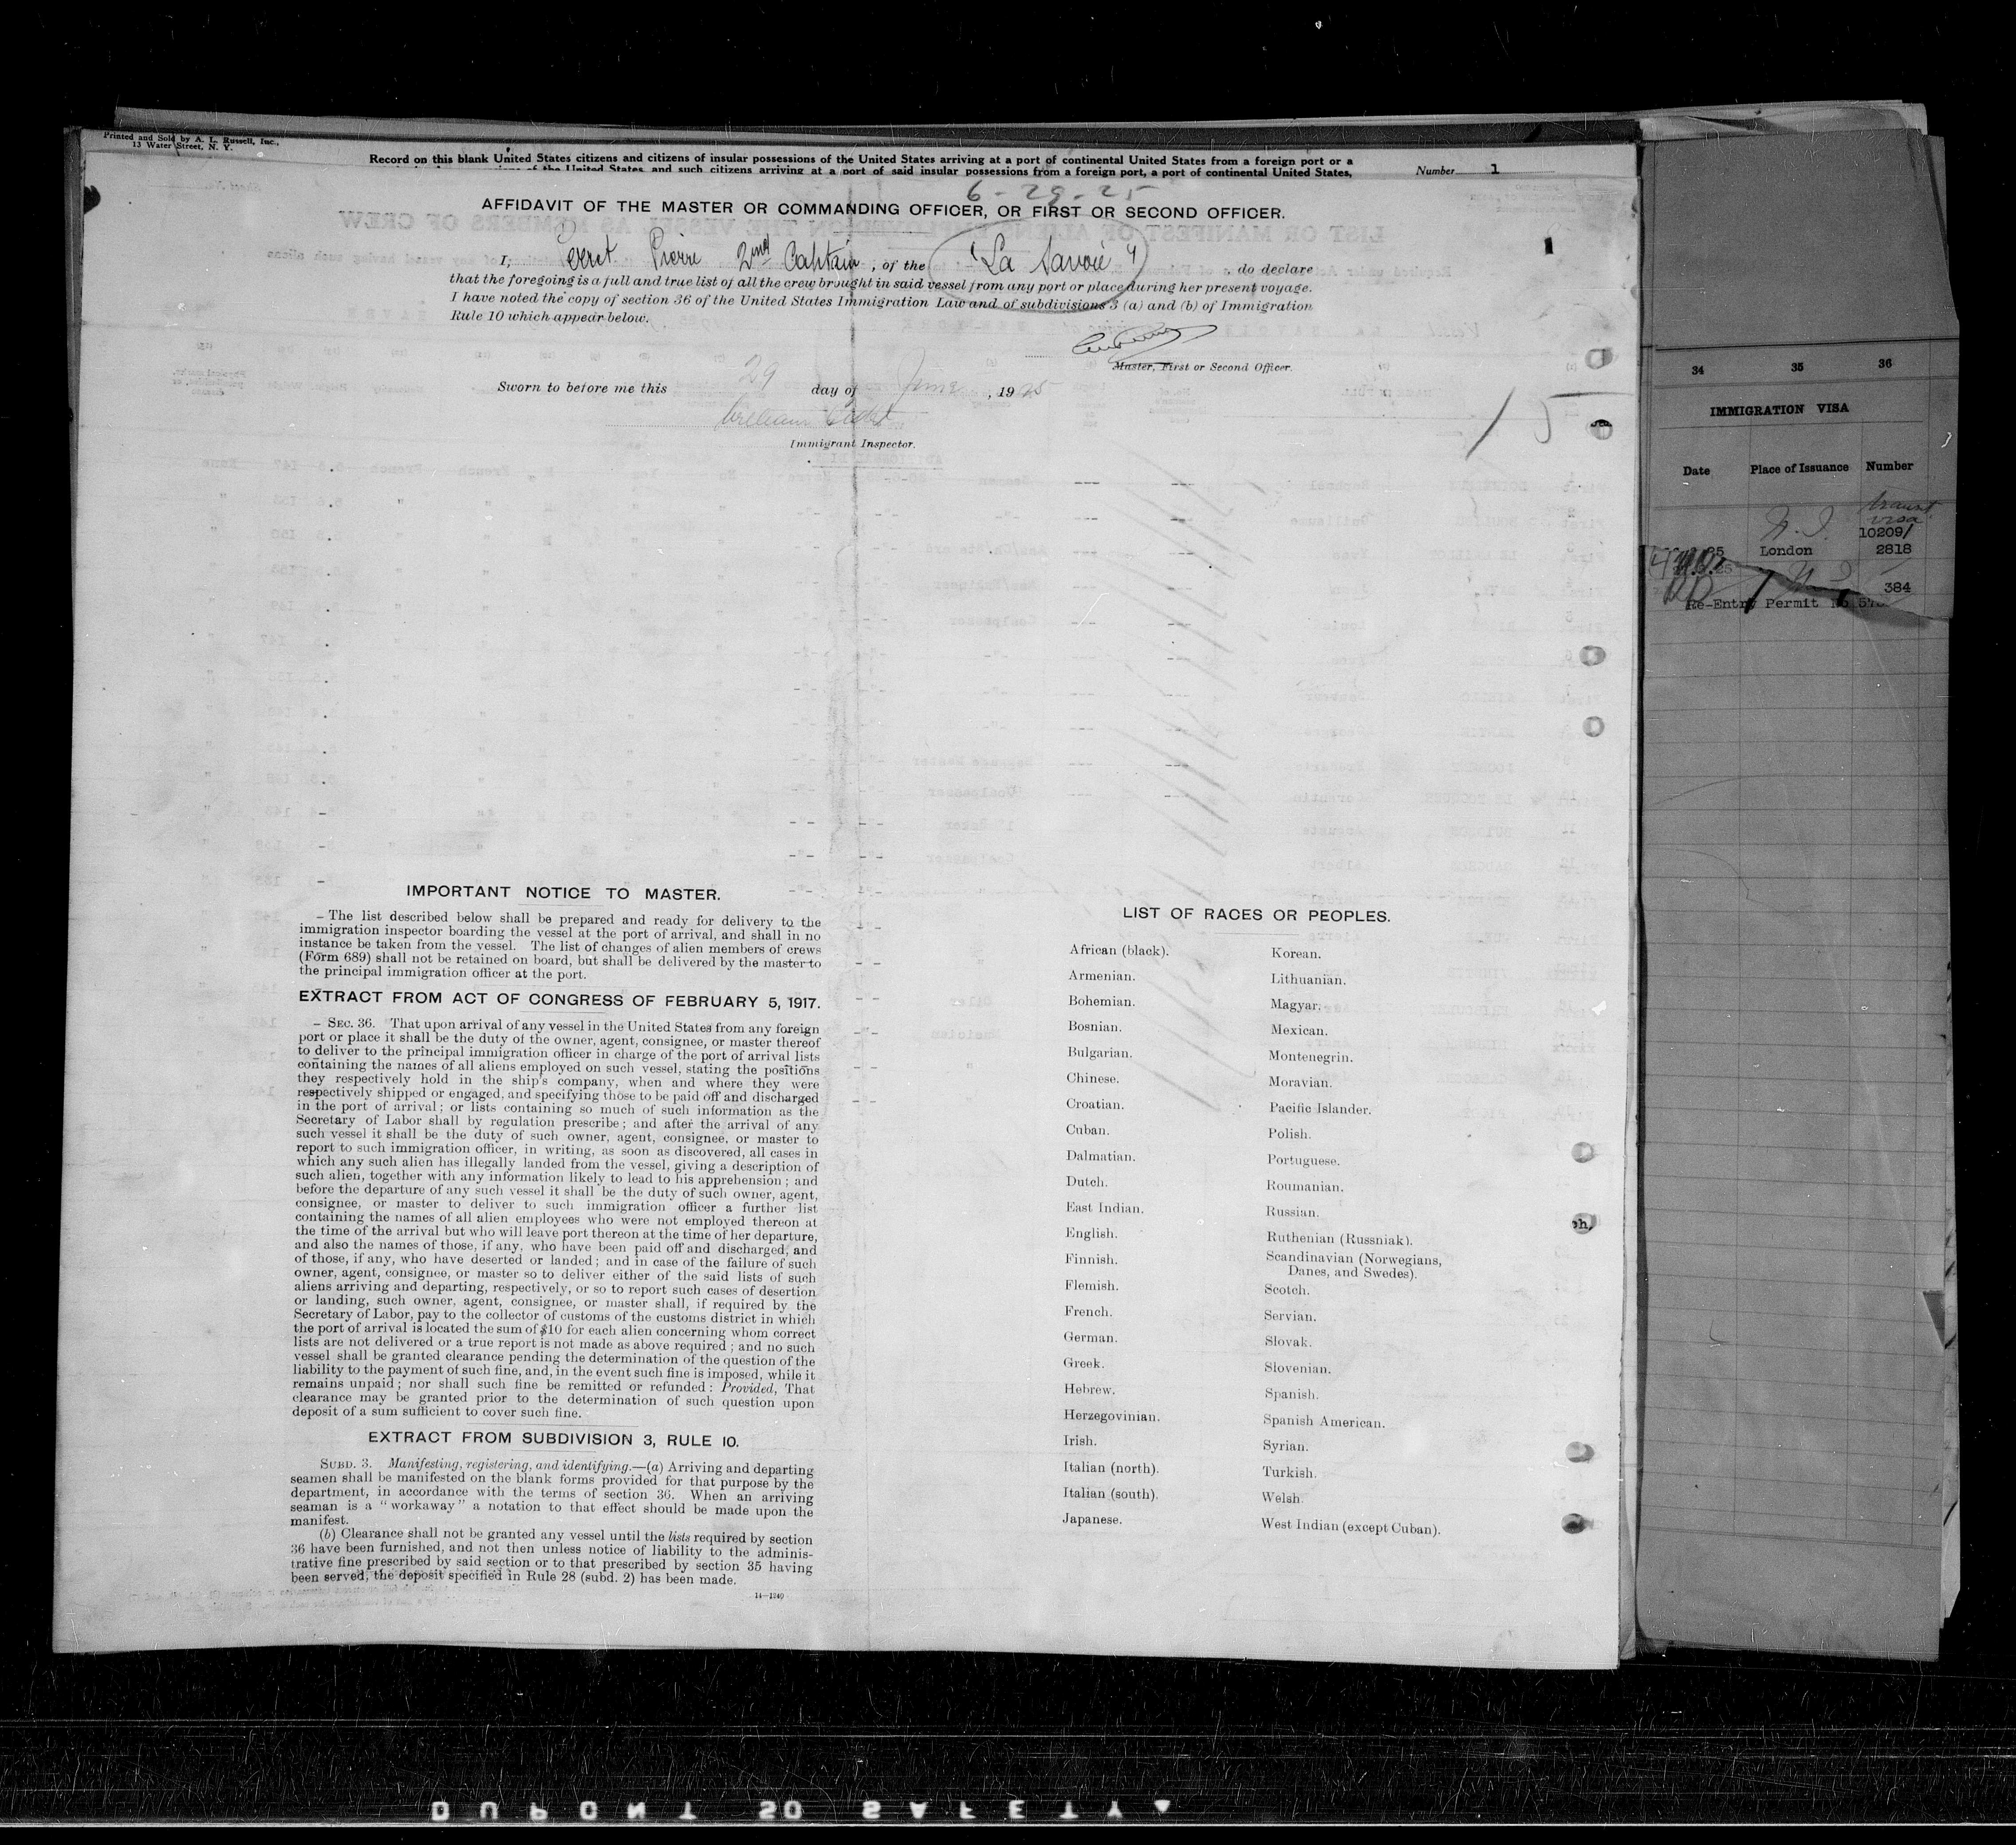 Printed and Sold by A. L. Russell, Inc.,
13 Water Street, N. Y.
Record on this blank United States citizens and citizens of insular possessions of the United States arriving at a port of continental United States from a foreign port or a
of the United States, and such citizens arriving at a port of said insular possessions from a foreign port, a port of continental United States,
Number 1
6-29-25
AFFIDAVIT OF THE MASTER OR COMMANDING OFFICER, OR FIRST OR SECOND OFFICER.
I, Pierre 2nd Captain, of the "La Savoie", do declare
that the foregoing is a full and true list of all the crew brought in said vessel from any port or place during her present voyage.
I have noted the copy of section 36 of the United States Immigration Law and of subdivisions 3 (a) and (b) of Immigration
Rule 10 which appear below.
Master, First or Second Officer.
Sworn to before me this 29 day of June, 1925
William
Immigrant Inspector.
15
IMPORTANT NOTICE TO MASTER.
— The list described below shall be prepared and ready for delivery to the
immigration inspector boarding the vessel at the port of arrival, and shall in no
instance be taken from the vessel. The list of changes of alien members of crews
(Form 689) shall not be retained on board, but shall be delivered by the master to
the principal immigration officer at the port.
EXTRACT FROM ACT OF CONGRESS OF FEBRUARY 5, 1917.
— SEC. 36. That upon arrival of any vessel in the United States from any foreign
port or place it shall be the duty of the owner, agent, consignee, or master thereof
to deliver to the principal immigration officer in charge of the port of arrival lists
containing the names of all aliens employed on such vessel, stating the positions
they respectively hold in the ship's company, when and where they were
respectively shipped or engaged, and specifying those to be paid off and discharged
in the port of arrival; or lists containing so much of such information as the
Secretary of Labor shall by regulation prescribe; and after the arrival of any
such vessel it shall be the duty of such owner, agent, consignee, or master to
report to such immigration officer, in writing, as soon as discovered, all cases in
which any such alien has illegally landed from the vessel, giving a description of
such alien, together with any information likely to lead to his apprehension; and
before the departure of any such vessel it shall be the duty of such owner, agent,
consignee, or master to deliver to such immigration officer a further list
containing the names of all alien employees who were not employed thereon at
the time of the arrival but who will leave port thereon at the time of her departure,
and also the names of those, if any, who have been paid off and discharged, and
of those, if any, who have deserted or landed; and in case of the failure of such
owner, agent, consignee, or master so to deliver either of the said lists of such
aliens arriving and departing, respectively, or so to report such cases of desertion
or landing, such owner, agent, consignee, or master shall, if required by the
Secretary of Labor, pay to the collector of customs of the customs district in which
the port of arrival is located the sum of $10 for each alien concerning whom correct
lists are not delivered or a true report is not made as above required; and no such
vessel shall be granted clearance pending the determination of the question of the
liability to the payment of such fine, and, in the event such fine is imposed, while it
remains unpaid; nor shall such fine be remitted or refunded: Provided, That
clearance may be granted prior to the determination of such question upon
deposit of a sum sufficient to cover such fine.
EXTRACT FROM SUBDIVISION 3, RULE 10.
SUBD. 3. Manifesting, registering, and identifying.—(a) Arriving and departing
seamen shall be manifested on the blank forms provided for that purpose by the
department, in accordance with the terms of section 36. When an arriving
seaman is a "workaway" a notation to that effect should be made upon the
manifest.
(b) Clearance shall not be granted any vessel until the lists required by section
36 have been furnished, and not then unless notice of liability to the adminis-
trative fine prescribed by said section or to that prescribed by section 35 having
been served, the deposit specified in Rule 28 (subd. 2) has been made.
14—1949
LIST OF RACES OR PEOPLES.
African (black).
Armenian.
Bohemian.
Bosnian.
Bulgarian.
Chinese.
Croatian.
Cuban.
Dalmatian.
Dutch.
East Indian.
English.
Finnish.
Flemish.
French.
German.
Greek.
Hebrew.
Herzegovinian.
Irish.
Italian (north).
Italian (south).
Japanese.
Korean.
Lithuanian.
Magyar.
Mexican.
Montenegrin.
Moravian.
Pacific Islander.
Polish.
Portuguese.
Roumanian.
Russian.
Ruthenian (Russniak).
Scandinavian (Norwegians,
Danes, and Swedes).
Scotch.
Servian.
Slovak.
Slovenian.
Spanish.
Spanish American.
Syrian.
Turkish.
Welsh.
West Indian (except Cuban).
34 35 36
IMMIGRATION VISA
Date Place of Issuance Number
transit
visa
10209/
London 2818
384
Re-Entry Permit No
DUPONT SAFETY